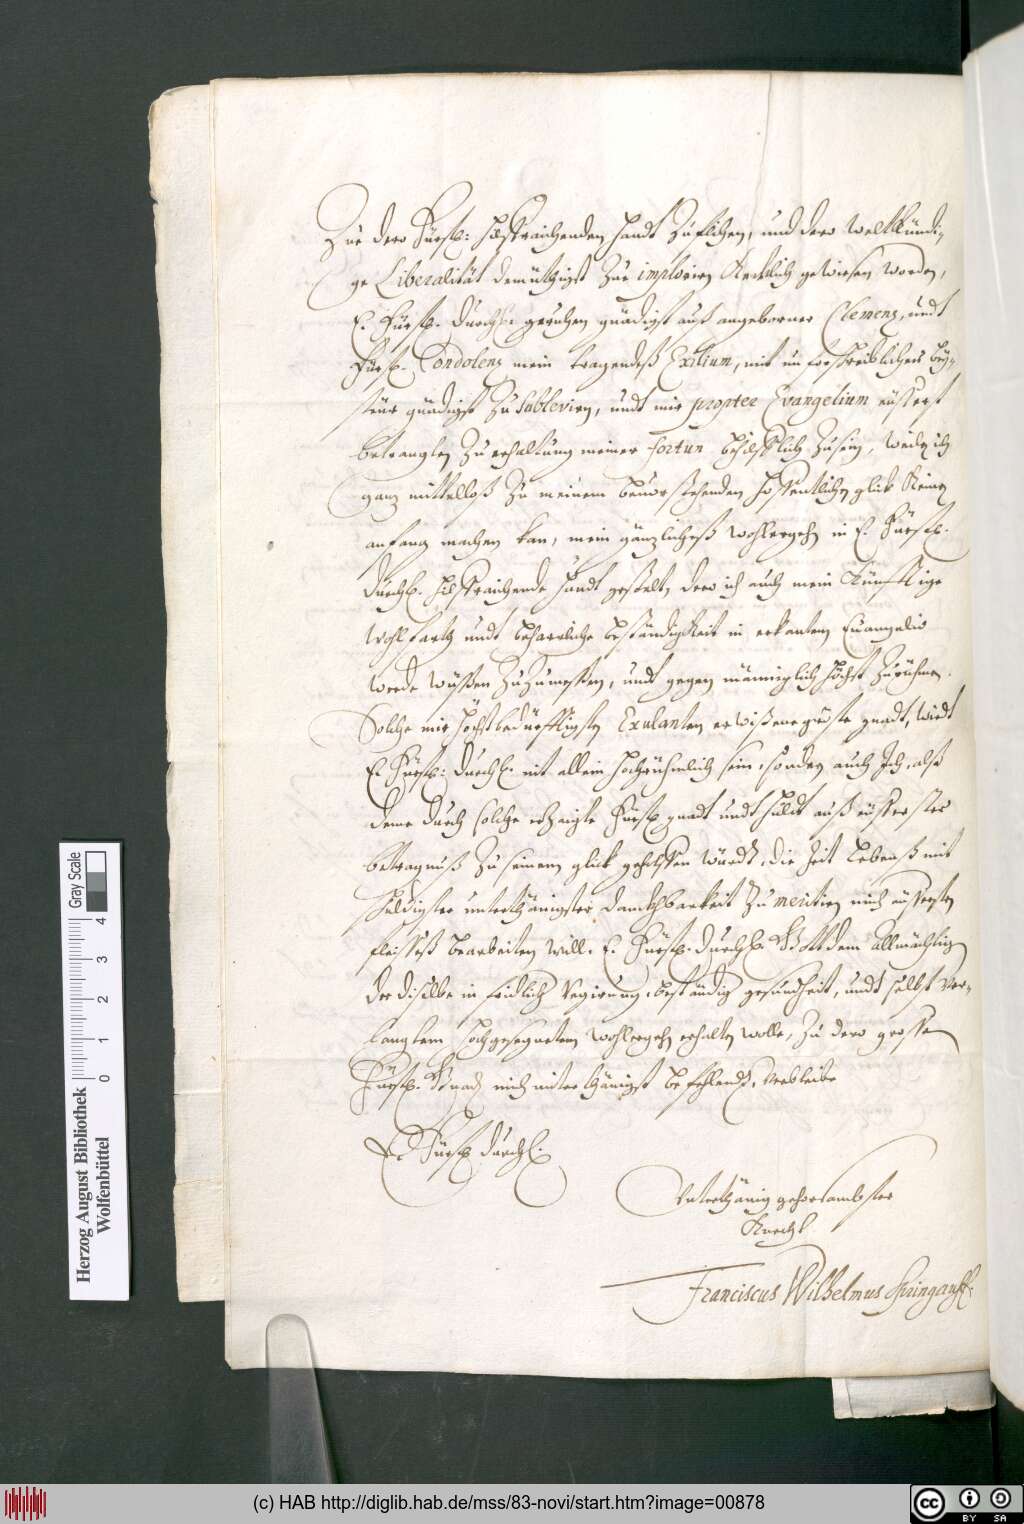 Zue dero Fürstl: hülffraichenden handt Zuflihen, und dero weltkündi-
ge Liberalität demüthigst Zue implorirn kecklich gewisen worden,
E. Fürstl. Durchl: geruhen gnädigst auß angeborner Clemenz, undt
Fürstl. Condolenz mein tragendeß Exilium, mit  bey-
steur gnädigst Zu sublevirn, undt mir propter Evangelium eüsserst
betrangten Zu erhaltung meiner fortun behilfflich Zusein, weilen ich
ganz mittelloß Zu meinem bevorstehenden hoffentlichen glick keinen
anfang machen kan, mein gänzlicheß wohlergehn in E. Fürstl.
Durchl. hilffraichende handt gestelt, dero ich auch mein künfftige
wohlfarth undt beharrliche beständigkeit in erkantem Evangelio
werde wüssen Zuzumessen, undt gegen männiglich höchst Zurühmen.
Solche mir höchstbedürfftigsten Exulanten erwißene gröste gnadt, wirdt
E. Fürstl: Durchl. nit allein hochrühmlich sein, sonder auch Ich, alß
deme durch solche erzaigte Fürstl gnadt undt huldt auß eüsserster
betragnuß Zu seinem glick geholffen würdt, die Zeit lebenß mit
schuldigster unterthänigster danckbarkeit Zu meritirn mich eüssersten
fleisses bearbeiten will. E. Fürstl. Durchl. Gott dem Allmächtigen
der diselbe in fridlich Regierung, beständig gesundheit, undt selbst ver-
langtem hochgesegnetem wohlergehn erhalten wolle, Zu dero grossen
Fürstl. Gnad mich unterthänigst befehlendt, verbleibe
E. Fürstl durchl.
Unterthänig gehorsambster
Knecht
Franciscus Wilhelmus
Herzog August Bibliothek
Wolfenbüttel
Gray Scale
0 1 2 3 4
(c) HAB http://diglib.hab.de/mss/83-novi/start.htm?image=00878
cc BY SA